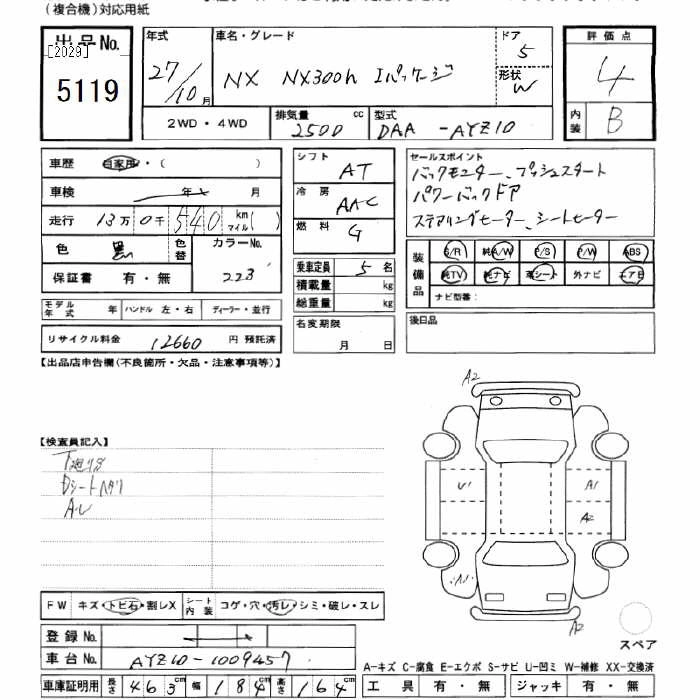 (複合機)対応用紙
出品No.
[2029]
5119
年式
27/10月
車名・グレード
NX NX300h Iパッケージ
ドア
5
形状
W
評価点
4
内装
B
2WD・4WD
排気量 cc
2500
型式
DAA -AYZ10
車歴 自家用・( )
車検 年 月
走行 13万0千540km マイル( )
色 黒
色替
カラーNo.
223
保証書 有・無
シフト
AT
冷房
AAC
燃料
G
乗車定員 5名
積載量 kg
総重量 kg
セールスポイント
バックモニター、プッシュスタート
パワーバックドア
ステアリングヒーター、シートヒーター
装備品
S/R 純A/W P/S P/W ABS
純TV 純ナビ 革シート 外ナビ エアB
ナビ型番:
モデル年式 年 ハンドル 左・右 ディーラー・並行
リサイクル料金 12660 円 預託済
名変期限
月 日
後日品
【出品店申告欄(不良箇所・欠品・注意事項等)】
【検査員記入】
下廻りサビ
Dシートヘタリ
A2
U1
A1
A2
A1
A2
スペア
FW キズ・トビ石・割レX
シート内装 コゲ・穴・汚レ・シミ・破レ・スレ
登録No.
車台No. AYZ10-1009457
車庫証明用 長さ 463cm 幅 184cm 高さ 164cm
A-キズ C-腐食 E-エクボ S-サビ U-凹ミ W-補修 XX-交換済
工具 有・無 ジャッキ 有・無